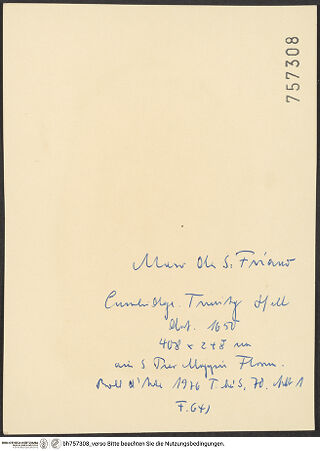 757308
Maso da S. Friano
Cambridge. Trinity Hall
1650
408 x 248 mm
aus S Pier Maggiore Floren.
1976 S. 78,
F. 641
bh757308_verso Bitte beachten Sie die Nutzungsbedingungen.